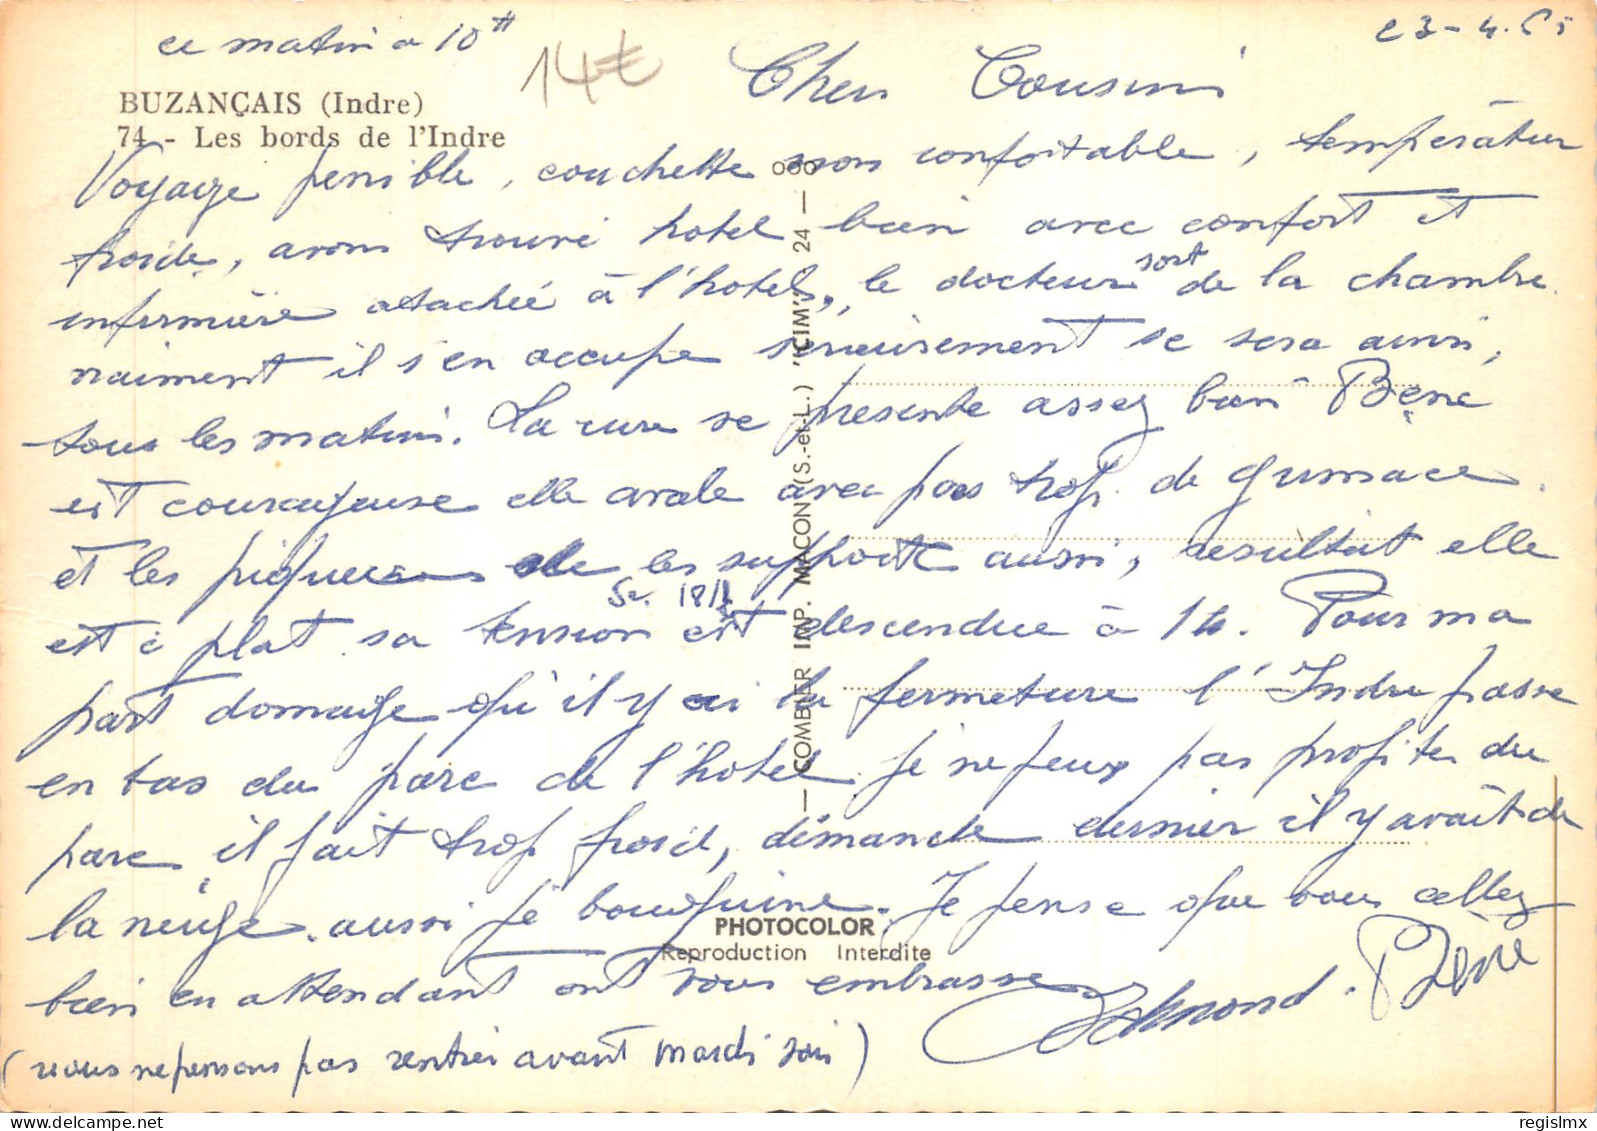 ce matin a 10H
14€
23-4.65
BUZANÇAIS (Indre)
74 - Les bords de l'Indre
Chers Cousins
Voyage penible, couchette non confortable, temperatur
froide, avons trouvé hotel bien avec confort et
infirmière attachée à l'hotel, le docteur sort de la chambre
vraiment il s'en occupe serieusement se sera ainsi,
tous les matins. La cure se presente assez bien Bene
est courageuse elle avale avec pas trop de grimace.
et les piqueres elle les supporte aussi, resultat elle
est à plat sa tension est descendue à 14. Pour ma
part domage qu'il y ai la fermeture l'Indre passe
en bas du parc de l'hotel je ne peux pas profiter du
parc il fait trop froid, dimanche dernier il y avait de
la neige. aussi je bouquine. Je pense que vous allez
bien en attendant ont vous embrasse
Edmond. Bene
(nous ne pensons pas rentrer avant mardi soir)
— COMBIER IMP. MACON (S.-et-L.) "CIM" — 24 — ooo
PHOTOCOLOR
Reproduction Interdite
delcampe.net
regislmx